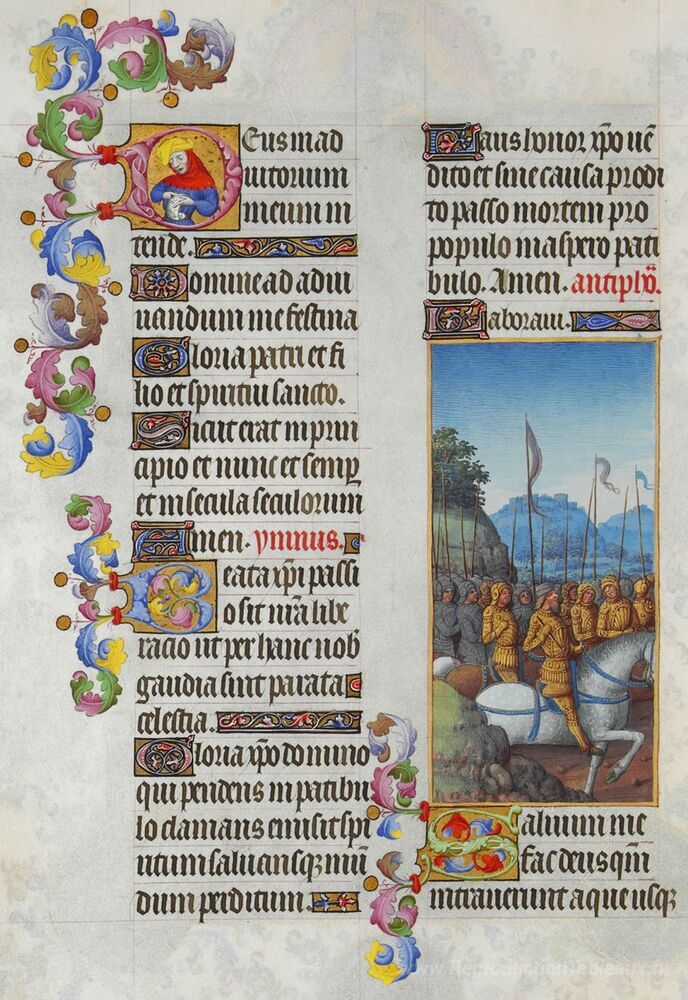 Deus in ad
iutorium
meum in
tende.
Domine ad adiu
uandum me festina
Gloria patri et fi
lio et spiritui sancto.
Sicut erat in prin
cipio et nunc et semp
et in secula seculorum
Amen. ymnus.
Beata xpi passi
o sit nra libe
racio ut per hanc nob
gaudia sint parata
celestia.
Gloria xpo domino
qui pendens in patibu
lo clamans emisit spi
ritum saluansqz mun
dum perditum.
Laus honor xpo uen
dito et sine causa prodi
to passo mortem pro
populo in aspero pati
bulo. Amen. antiphona.
Laboraui.
Saluum me
fac deus qm
intrauerunt aque usqz